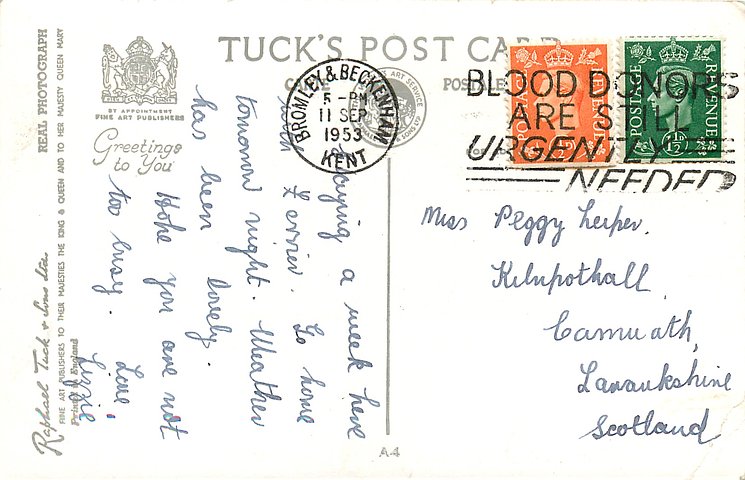 TUCK'S POST CARD
BY APPOINTMENT
FINE ART PUBLISHERS
Greetings
to You
REAL PHOTOGRAPH
Raphael Tuck & Sons Ltd.
FINE ART PUBLISHERS TO THEIR MAJESTIES THE KING & QUEEN AND TO HER MAJESTY QUEEN MARY
Printed in England
BROMLEY & BECKENHAM
5 - PM
11 SEP
1953
KENT
BLOOD DONORS
ARE STILL
URGENTLY
NEEDED
POSTAGE REVENUE
POSTAGE REVENUE
staying a week here
Go home
tomorrow night. Weather
has been lovely.
Hope you are not
too busy. Love
Lizzie
Miss Peggy Leiper.
Kilnpothall
Carnwath,
Lanarkshire
Scotland
A-4